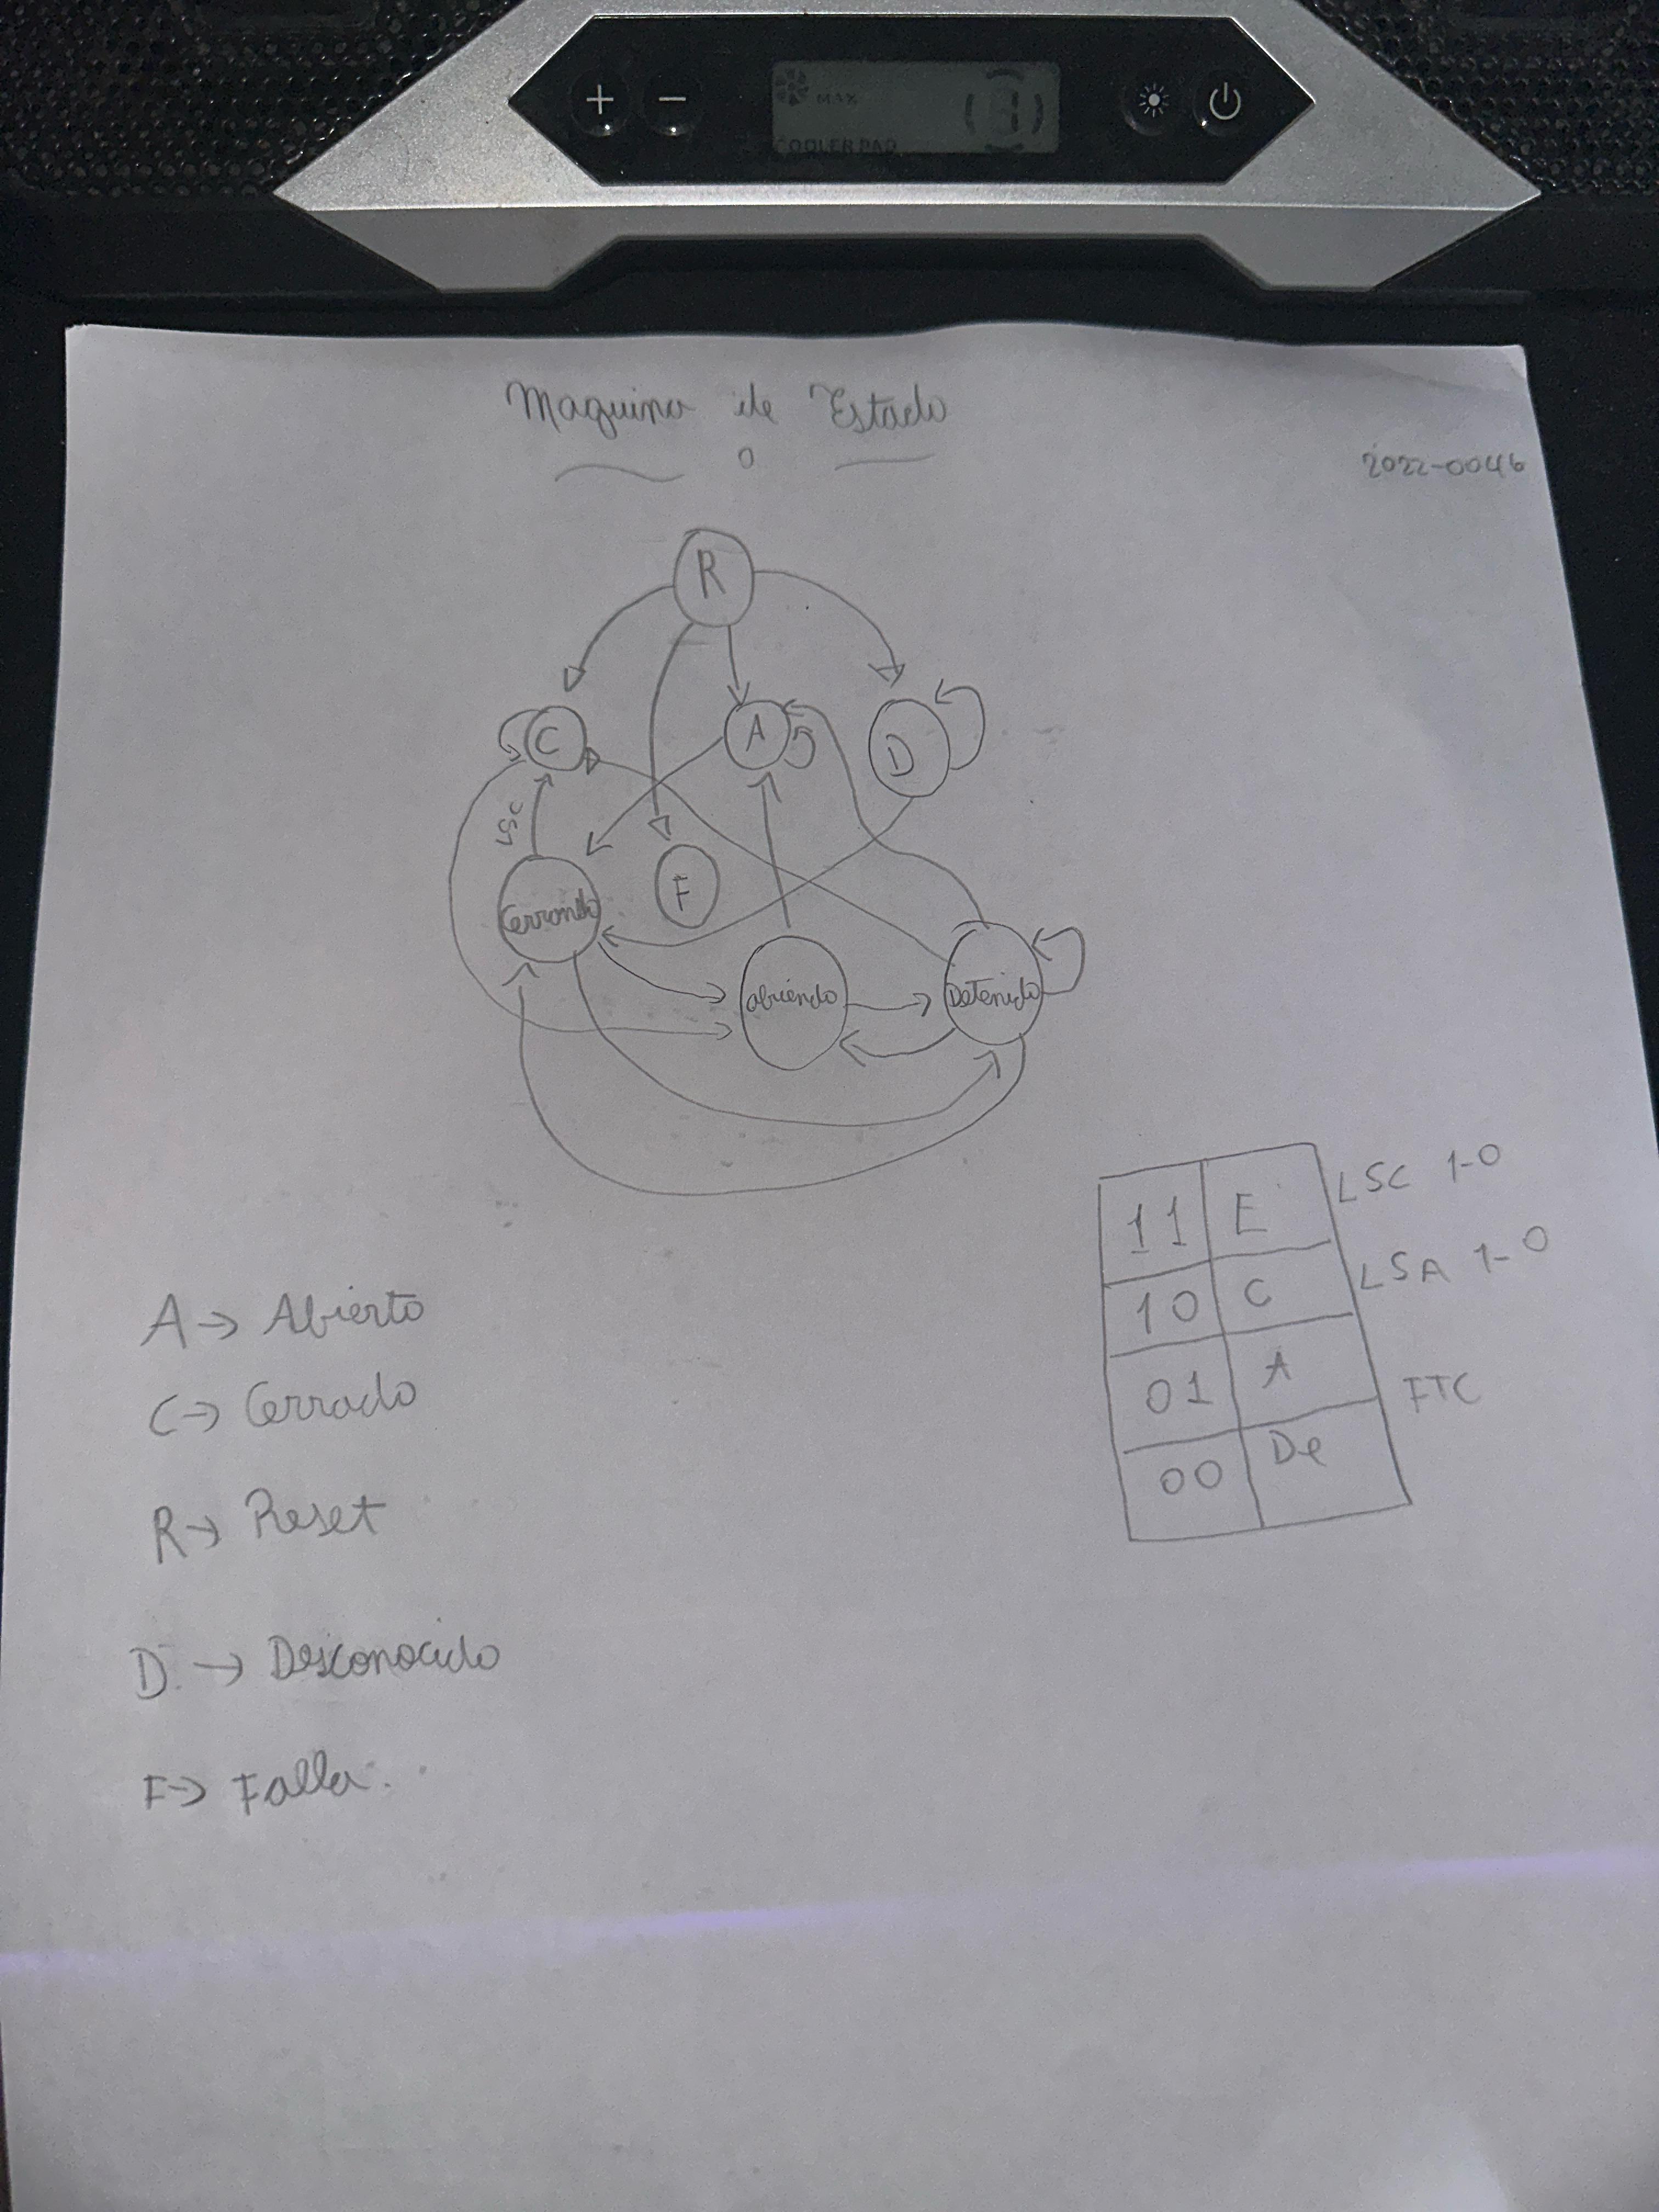 + − MAX
COOLER PAD
Maquina de Estado
2022-0046
R
C A D
LSC
Cerrando F
abriendo Detenido
11 E LSC 1-0
10 C LSA 1-0
01 A FTC
00 De
A→ Abierto
C→ Cerrado
R→ Reset
D → Desconocido
F→ Falla